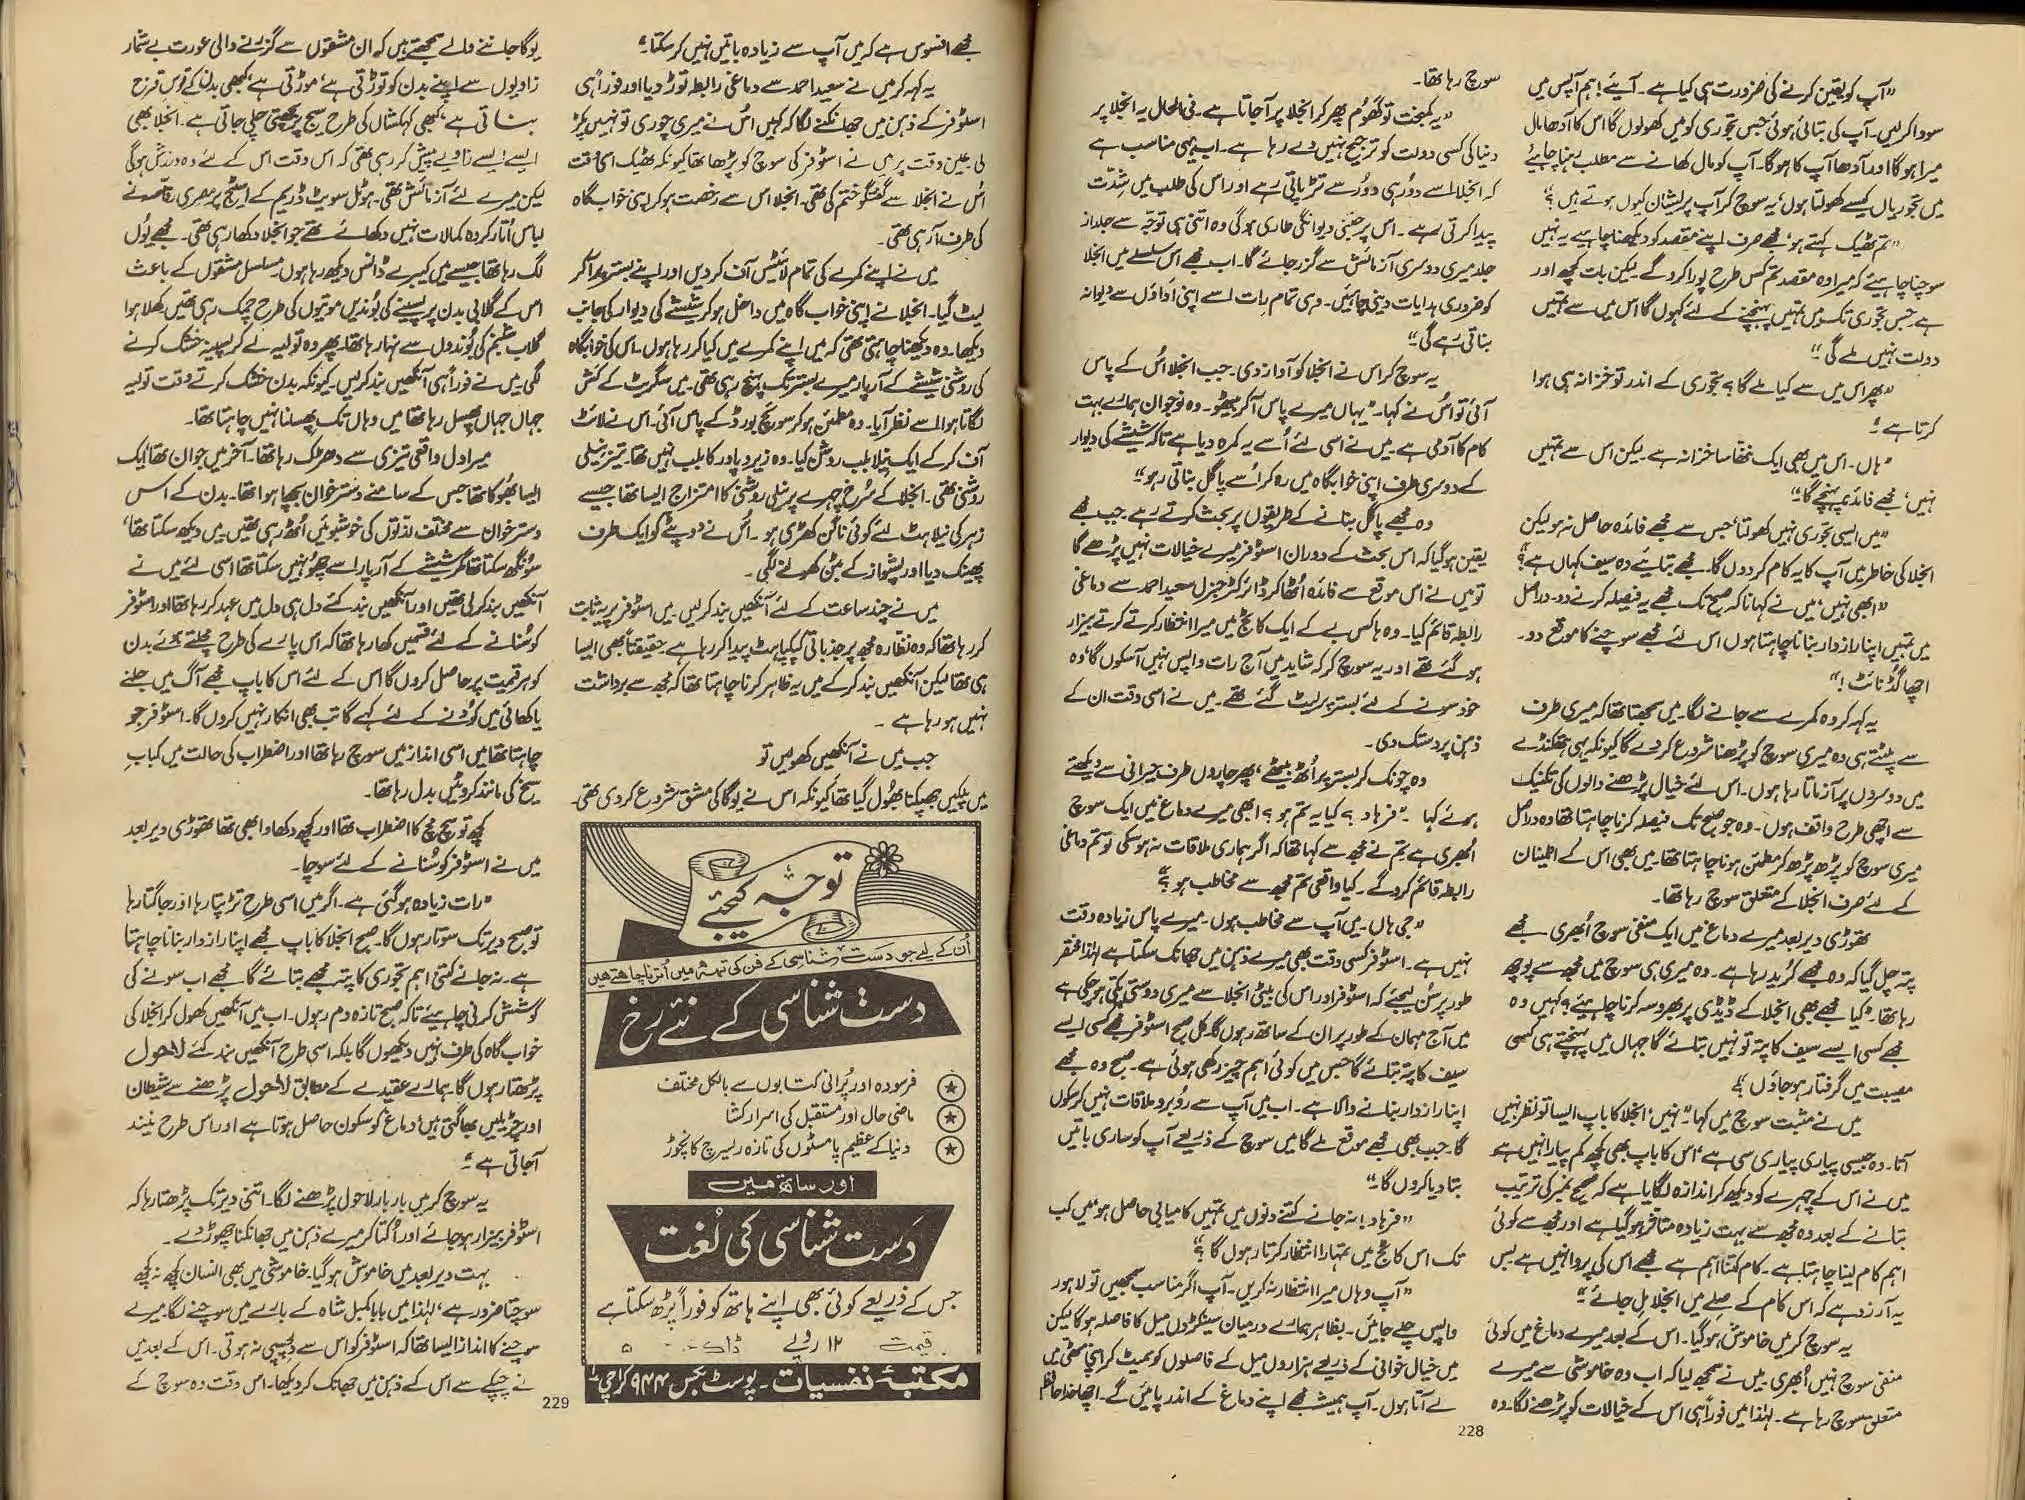 ”آپ کو یقین کرنے کی ضرورت ہی کیا ہے۔ آیئے! ہم آپس میں
سودا کر لیں۔ آپ کی بتائی ہوئی جس تجوری کو میں کھولوں گا اس کا آدھا مال
میرا ہوگا اور آدھا آپ کا ہوگا۔ آپ کو مال کھانے سے مطلب ہونا چاہیئے
میں تجوریاں کیسے کھولتا ہوں، یہ سوچ کر آپ پریشان کیوں ہوتے ہیں؟“
”تم ٹھیک کہتے ہو، مجھے صرف اپنے مقصد کو دیکھنا چاہیے یہ نہیں
سوچنا چاہیئے کہ میرا وہ مقصد تم کس طرح پورا کرو گے۔ لیکن بات کچھ اور
ہے جس تجوری تک میں تمہیں پہنچنے کے لئے کہوں گا اس میں سے تمہیں
دولت نہیں ملے گی“
”پھر اس میں سے کیا ملے گا؟ تجوری کے اندر تو خزانہ ہی ہوا
کرتا ہے“
”ہاں۔ اس میں بھی ایک ننھا سا خزانہ ہے۔ لیکن اس سے تمہیں
نہیں، مجھے فائدہ پہنچے گا“
”میں ایسی تجوری نہیں کھولتا، جس سے مجھے فائدہ حاصل نہ ہو لیکن
انجلا کی خاطر میں آپ کا یہ کام کر دوں گا۔ مجھے بتایئے وہ سیف کہاں ہے؟“
”ابھی نہیں، میں نے کہا نا کہ صبح تک مجھے یہ فیصلہ کرنے دو۔ دراصل
میں تمہیں اپنا رازدار بنانا چاہتا ہوں اس لئے مجھے سوچنے کا موقع دو۔
اچھا گڈ نائٹ!“
یہ کہہ کر وہ کمرے سے جانے لگا۔ میں سمجھتا تھا کہ میری طرف
سے پلٹتے ہی وہ میری سوچ کو پڑھنا شروع کر دے گا کیونکہ یہی ہتھکنڈے
میں دوسروں پر آزماتا رہا ہوں۔ اس لئے خیال پڑھنے والوں کی تکنیک
سے اچھی طرح واقف ہوں۔ وہ جو صبح تک فیصلہ کرنا چاہتا تھا وہ دراصل
میری سوچ کو پڑھ پڑھ کر مطمئن ہونا چاہتا تھا۔ میں بھی اس کے اطمینان
کے لئے صرف انجلا کے متعلق سوچ رہا تھا۔
تھوڑی دیر بعد میرے دماغ میں ایک منفی سوچ اُبھری۔ مجھے
پتہ چل گیا کہ وہ مجھے کرید رہا ہے۔ وہ میری ہی سوچ میں مجھ سے پوچھ
رہا تھا۔ ”کیا مجھے بھی انجلا کے ڈیڈی پر بھروسہ کرنا چاہیئے؟ کہیں وہ
مجھے کسی ایسے سیف کا پتہ تو نہیں بتائے گا جہاں میں پہنچتے ہی کسی
مصیبت میں گرفتار ہو جاؤں“
میں نے مثبت سوچ میں کہا ”نہیں، انجلا کا باپ ایسا تو نظر نہیں
آتا۔ وہ جیسی پیاری پیاری سی ہے، اس کا باپ بھی کچھ کم پیارا نہیں ہے
میں نے اس کے چہرے کو دیکھ کر اندازہ لگایا ہے کہ صحیح نمبر کی ترتیب
بتانے کے بعد وہ مجھ سے بہت زیادہ متاثر ہو گیا ہے اور مجھ سے کوئی
اہم کام لینا چاہتا ہے۔ کام کتنا اہم ہے مجھے اس کی پروا نہیں ہے بس
یہ آرزو ہے کہ اس کام کے صلے میں انجلا مل جائے“
یہ سوچ کر میں خاموش ہو گیا۔ اس کے بعد میرے دماغ میں کوئی
منفی سوچ نہیں اُبھری۔ میں نے سمجھ لیا کہ اب وہ خاموشی سے میرے
متعلق سوچ رہا ہے۔ لہٰذا میں فوراً ہی اس کے خیالات کو پڑھنے لگا۔ وہ
سوچ رہا تھا۔
”یہ کمبخت تو گھوم پھر کر انجلا پر آ جاتا ہے۔ فی الحال یہ انجلا پر
دنیا کی کسی دولت کو ترجیح نہیں دے رہا ہے۔ اب یہی مناسب ہے
کہ انجلا اسے دور ہی دور سے تڑپاتی رہے اور اس کی طلب میں شدّت
پیدا کرتی رہے۔ اس پر جتنی دیوانگی طاری ہوگی وہ اتنی ہی توجہ سے جلد از
جلد میری دوسری آزمائش سے گزر جائے گا۔ اب مجھے اس سلسلے میں انجلا
کو ضروری ہدایات دینی چاہئیں۔ وہی تمام رات اسے اپنی اداؤں سے دیوانہ
بناتی رہے گی“
یہ سوچ کر اس نے انجلا کو آواز دی۔ جب انجلا اُس کے پاس
آئی تو اُس نے کہا۔ ”یہاں میرے پاس آکر بیٹھو۔ وہ نوجوان ہمارے بہت
کام کا آدمی ہے۔ میں نے اسی لئے اُسے یہ کمرہ دیا ہے تاکہ شیشے کی دیوار
کے دوسری طرف اپنی خوابگاہ میں رہ کر اُسے پاگل بناتی رہو“
وہ مجھے پاگل بنانے کے طریقوں پر بحث کرتے رہے۔ جب مجھے
یقین ہوگیا کہ اس بحث کے دوران اسٹوفر میرے خیالات نہیں پڑھے گا
تو میں نے اس موقع سے فائدہ اُٹھا کر ڈائرکٹر جنرل سعید احمد سے دماغی
رابطہ قائم کیا۔ وہ ہاکس بے کے ایک کاٹیج میں میرا انتظار کرتے کرتے بیزار
ہو گئے تھے اور یہ سوچ کر کہ شاید میں آج رات واپس نہیں آسکوں گا، وہ
خود سونے کے لئے بستر پر لیٹ گئے تھے۔ میں نے اسی وقت ان کے
ذہن پر دستک دی۔
وہ چونک کر بستر پر اُٹھ بیٹھے، پھر چاروں طرف حیرانی سے دیکھتے
ہوئے کہا۔ ”فرہاد؟ کیا یہ تم ہو؟ ابھی میرے دماغ میں ایک سوچ
اُبھری ہے تم نے مجھ سے کہا تھا کہ اگر ہماری ملاقات نہ ہو سکی تو تم دماغی
رابطہ قائم کرو گے۔ کیا واقعی تم مجھ سے مخاطب ہو؟“
”جی ہاں۔ میں آپ سے مخاطب ہوں۔ میرے پاس زیادہ وقت
نہیں ہے۔ اسٹوفر کسی وقت بھی میرے ذہن میں جھانک سکتا ہے لہٰذا مختصر
طور پر سُن لیجئے کہ اسٹوفر اور اس کی بیٹی انجلا سے میری دوستی پکی ہو چکی ہے
میں آج مہمان کے طور پر ان کے ساتھ رہوں گا۔ کل صبح اسٹوفر مجھے کسی ایسے
سیف کا پتہ بتائے گا جس میں کوئی اہم چیز رکھی ہوئی ہے۔ صبح وہ مجھے
اپنا رازدار بنانے والا ہے۔ اب میں آپ سے رُوبرو ملاقات نہیں کر سکوں
گا۔ جب بھی مجھے موقع ملے گا میں سوچ کے ذریعے آپ کو ساری باتیں
بتا دیا کروں گا“
”فرہاد! نہ جانے کتنے دنوں میں تمہیں کامیابی حاصل ہو، میں کب
تک اس کاٹیج میں تمہارا انتظار کرتا رہوں گا؟“
”آپ وہاں میرا انتظار نہ کریں۔ آپ اگر مناسب سمجھیں تو لاہور
واپس چلے جائیں۔ بظاہر ہمارے درمیان سینکڑوں میل کا فاصلہ ہوگا لیکن
میں خیال خوانی کے ذریعے ہزاروں میل کے فاصلوں کو سمیٹ کر اپنی مٹھی میں
لے آتا ہوں۔ آپ ہمیشہ مجھے اپنے دماغ کے اندر پائیں گے۔ اچھا خدا حافظ
228
مجھے افسوس ہے کہ میں آپ سے زیادہ باتیں نہیں کر سکتا“
یہ کہہ کر میں نے سعید احمد سے دماغی رابطہ توڑ دیا اور فوراً ہی
اسٹوفر کے ذہن میں جھانکنے لگا کہ کہیں اُس نے میری چوری تو نہیں پکڑ
لی۔ عین وقت پر میں نے اسٹوفر کی سوچ کو پڑھا تھا کیونکہ ٹھیک اسی وقت
اُس نے انجلا سے گفتگو ختم کی تھی۔ انجلا اس سے رخصت ہو کر اپنی خوابگاہ
کی طرف آ رہی تھی۔
میں نے اپنے کمرے کی تمام لائٹس آف کر دیں اور اپنے بستر پر آ کر
لیٹ گیا۔ انجلا نے اپنی خواب گاہ میں داخل ہو کر شیشے کی دیوار کی جانب
دیکھا۔ وہ دیکھنا چاہتی تھی کہ میں اپنے کمرے میں کیا کر رہا ہوں۔ اس کی خوابگاہ
کی روشنی شیشے کے آرپار میرے بستر تک پہنچ رہی تھی۔ میں سگریٹ کے کش
لگاتا ہوا اسے نظر آیا۔ وہ مطمئن ہو کر سوئچ بورڈ کے پاس آئی۔ اس نے لائٹ
آف کر کے ایک نیلا بلب روشن کیا۔ وہ زیرو پاور کا بلب نہیں تھا۔ تیز نیلی
روشنی تھی۔ انجلا کے سُرخ چہرے پر نیلی روشنی کا امتزاج ایسا تھا جیسے
زہر کی نیلاہٹ لئے کوئی ناگن کھڑی ہو۔ اُس نے دوپٹے کو ایک طرف
پھینک دیا اور پشواز کے بٹن کھولنے لگی۔
میں نے چند ساعت کے لئے آنکھیں بند کر لیں۔ میں اسٹوفر پر یہ ثابت
کر رہا تھا کہ وہ نظارہ مجھ پر جذباتی کپکپاہٹ پیدا کر رہا ہے۔ حقیقتاً بھی ایسا
ہی تھا لیکن آنکھیں بند کر کے میں یہ ظاہر کرنا چاہتا تھا کہ مجھ سے برداشت
نہیں ہو رہا ہے۔
جب میں نے آنکھیں کھولیں تو
میں پلکیں جھپکنا بھول گیا تھا کیونکہ اس نے یوگا کی مشق شروع کر دی تھی۔
توجہ کیجئے
اُن کے لیے جو دست شناسی کے فن کی تہہ میں اُترنا چاہتے ہیں
دست شناسی کے نئے رخ
فرسودہ اور پُرانی کتابوں سے بالکل مختلف
ماضی حال اور مستقبل کی اسرار کشا
دنیا کے عظیم پامسٹوں کی تازہ ریسرچ کا نچوڑ
اور ساتھ میں
دست شناسی کی لُغت
جس کے ذریعے کوئی بھی اپنے ہاتھ کو فوراً پڑھ سکتا ہے
قیمت ۱۲ روپے ڈاک ۵
مکتبۂ نفسیات۔ پوسٹ بکس ۹۴۴ کراچی ۱
یوگا جاننے والے سمجھتے ہیں کہ ان مشقوں سے گزرنے والی عورت بے شمار
زاویوں سے اپنے بدن کو توڑتی ہے، موڑتی ہے، کبھی بدن کے قوسِ قزح
بناتی ہے، کبھی کہکشاں کی طرح سیج پر بچھتی چلی جاتی ہے۔ انجلا بھی
ایسے ایسے زاویے پیش کر رہی تھی کہ اس وقت اس کے لئے وہ ورزش ہوگی
لیکن میرے لئے آزمائش تھی۔ ہوٹل سویٹ ڈریم کے اسٹیج پر مصری رقاصہ نے
لباس اُتار کر وہ کمالات نہیں دکھائے تھے جو انجلا دکھا رہی تھی۔ مجھے یوں
لگ رہا تھا جیسے میں کیبرے ڈانس دیکھ رہا ہوں۔ مسلسل مشقوں کے باعث
اس کے گلابی بدن پر پسینے کی بُوندیں موتیوں کی طرح چمک رہی تھیں۔ کھلا ہوا
گلاب شبنم کی بُوندوں سے نہا رہا تھا۔ پھر وہ تولیہ لے کر پسینہ خشک کرنے
لگی۔ میں نے فوراً ہی آنکھیں بند کر لیں۔ کیونکہ بدن خشک کرتے وقت تولیہ
جہاں جہاں پھسل رہا تھا میں وہاں تک پھسلنا نہیں چاہتا تھا۔
میرا دل واقعی تیزی سے دھڑک رہا تھا۔ آخر میں جوان تھا ایک
ایسا بھوکا تھا جس کے سامنے دسترخوان بچھا ہوا تھا۔ بدن کے اس
دسترخوان سے مختلف لذتوں کی خوشبوئیں اُٹھ رہی تھیں۔ میں دیکھ سکتا تھا،
سونگھ سکتا تھا مگر شیشے کے آرپار اسے چھو نہیں سکتا تھا اسی لئے میں نے
آنکھیں بند کر لی تھیں اور آنکھیں بند کئے دل ہی دل میں عہد کر رہا تھا اور اسٹوفر
کو سُنانے کے لئے قسمیں کھا رہا تھا کہ اس پارے کی طرح مچلتے ہوئے بدن
کو ہر قیمت پر حاصل کروں گا اس کے لئے اس کا باپ مجھے آگ میں جلنے
یا کھائی میں کُودنے کے لئے کہے گا تب بھی انکار نہیں کروں گا۔ اسٹوفر جو
چاہتا تھا میں اسی انداز میں سوچ رہا تھا اور اضطراب کی حالت میں کبابِ
سیخ کی مانند کروٹیں بدل رہا تھا۔
کچھ تو سچ مچ کا اضطراب تھا اور کچھ دکھاوا بھی تھا تھوڑی دیر بعد
میں نے اسٹوفر کو سُنانے کے لئے سوچا۔
”رات زیادہ ہو گئی ہے۔ اگر میں اسی طرح تڑپتا رہا اور جاگتا رہا
تو صبح دیر تک سوتا رہوں گا۔ صبح انجلا کا باپ مجھے اپنا رازدار بنانا چاہتا
ہے۔ نہ جانے کتنی اہم تجوری کا پتہ مجھے بتائے گا مجھے اب سونے کی
کوشش کرنی چاہیئے تاکہ صبح تازہ دم رہوں۔ اب میں آنکھیں کھول کر انجلا کی
خواب گاہ کی طرف نہیں دیکھوں گا بلکہ اسی طرح آنکھیں بند کئے لاحول
پڑھتا رہوں گا۔ ہمارے عقیدے کے مطابق لاحول پڑھنے سے شیطان
اور چڑیلیں بھاگتی ہیں، دماغ کو سکون حاصل ہوتا ہے اور اس طرح نیند
آ جاتی ہے“
یہ سوچ کر میں بار بار لاحول پڑھنے لگا۔ اتنی دیر تک پڑھتا رہا کہ
اسٹوفر بیزار ہو جائے اور اُکتا کر میرے ذہن میں جھانکنا چھوڑ دے۔
بہت دیر بعد میں خاموش ہو گیا۔ خاموشی میں بھی انسان کچھ نہ کچھ
سوچتا ضرور ہے، لہٰذا میں بابا کمبل شاہ کے بارے میں سوچنے لگا۔ میرے
سوچنے کا انداز ایسا تھا کہ اسٹوفر کو اس سے دلچسپی نہ ہوتی۔ اس کے بعد میں
نے چپکے سے اس کے ذہن میں جھانک کر دیکھا۔ اس وقت وہ سوچ کے
229